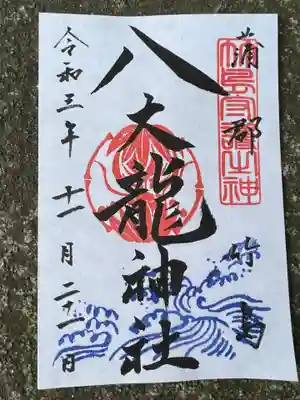 蒲郡 竹島
八大龍神社
令和三年十一月二十一日